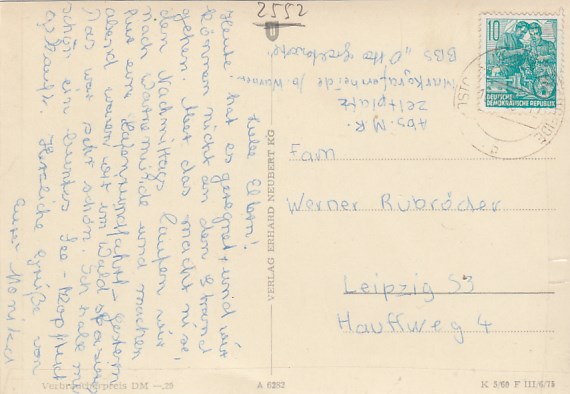 2552
Liebe Eltern!
Heute hat es geregnet und wir
können nicht an den Strand
gehen. Aber das macht nise,
den Nachmittags laufen wir
nach Warnemünde und machen
eine Hafenrundfahrt. Gestern
abend waren wir im Wald spazieren
Das war sehr schön. Ich habe mir
schon ein buntes See-Kopftuch
gekauft. Herzliche Grüße von
eurer Monika
Abs. M.R.
Zeltplatz
Markgrafenheide b. Warnem.
BBS "Otto
10
DEUTSCHE
DEMOKRATISCHE REPUBLIK
Fam
Werner Rubröder
Leipzig S3
Hauffweg 4
VERLAG ERHARD NEUBERT KG
Verbraucherpreis DM —,25
A 6282
K 5/60 F III/6/75